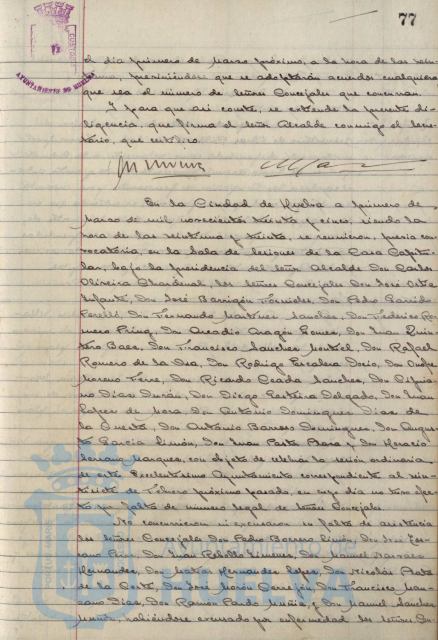 77
AYUNTAMIENTO DE HUELVA
el día primero de Marzo próximo, a la hora de las
previniéndose que se adoptarán acuerdos cualquiera
que sea el número de Señores Concejales que concurran.
Y para que así conste, se extiende la presente di-
ligencia, que firma el Señor Alcalde conmigo el Secre-
tario, que certifico.
En la Ciudad de Huelva a primero de
Marzo de mil novecientos treinta y cinco, siendo la
hora de las veintiuna y treinta, se reunieron, previa con-
vocatoria, en la Sala de Sesiones de la Casa Capitu-
lar, bajo la presidencia del Señor Alcalde Don Carlos
Oliveira Chardenal, los Señores Concejales Don José Orta
Infante, Don José Barrigón Fornieles, Don Pedro Garrido
Perelló, Don Fernando Martínez Sánchez, Don Federico Ro-
mero Don Arcadio Aragón Gómez, Don Juan Quin-
tero Báez, Don Francisco Sánchez Don Rafael
Romero de la Don Rodrigo Don
Moreno Don Ricardo Ceada Sánchez, Don Cipria-
no Díaz Durán, Don Diego Delgado, Don Juan
López de Mora, Don Antonio Domínguez Díaz de
la Don Antonio Barroso Domínguez, Don Augus-
to García Limón, Don Juan Parta y Don Horacio
Soriano Márquez, con objeto de celebrar la sesión ordinaria
de este Excelentísimo Ayuntamiento correspondiente al vein-
tisiete de Febrero próximo pasado, en cuyo día no tuvo efec-
to por falta de número legal de Señores Concejales.
No concurrieron ni excusaron su falta de asistencia
los Señores Concejales Don Pedro Borrero Limón, Don José
Don Juan Rebollo Jiménez, Don Manuel
Hernández, Don Matías Hernández López, Don Nicolás
de la Corte, Don José Morón Don Francisco
Díaz, Don Ramón Pardo y Don Manuel Sánchez
habiéndose excusado por enfermedad los Señores